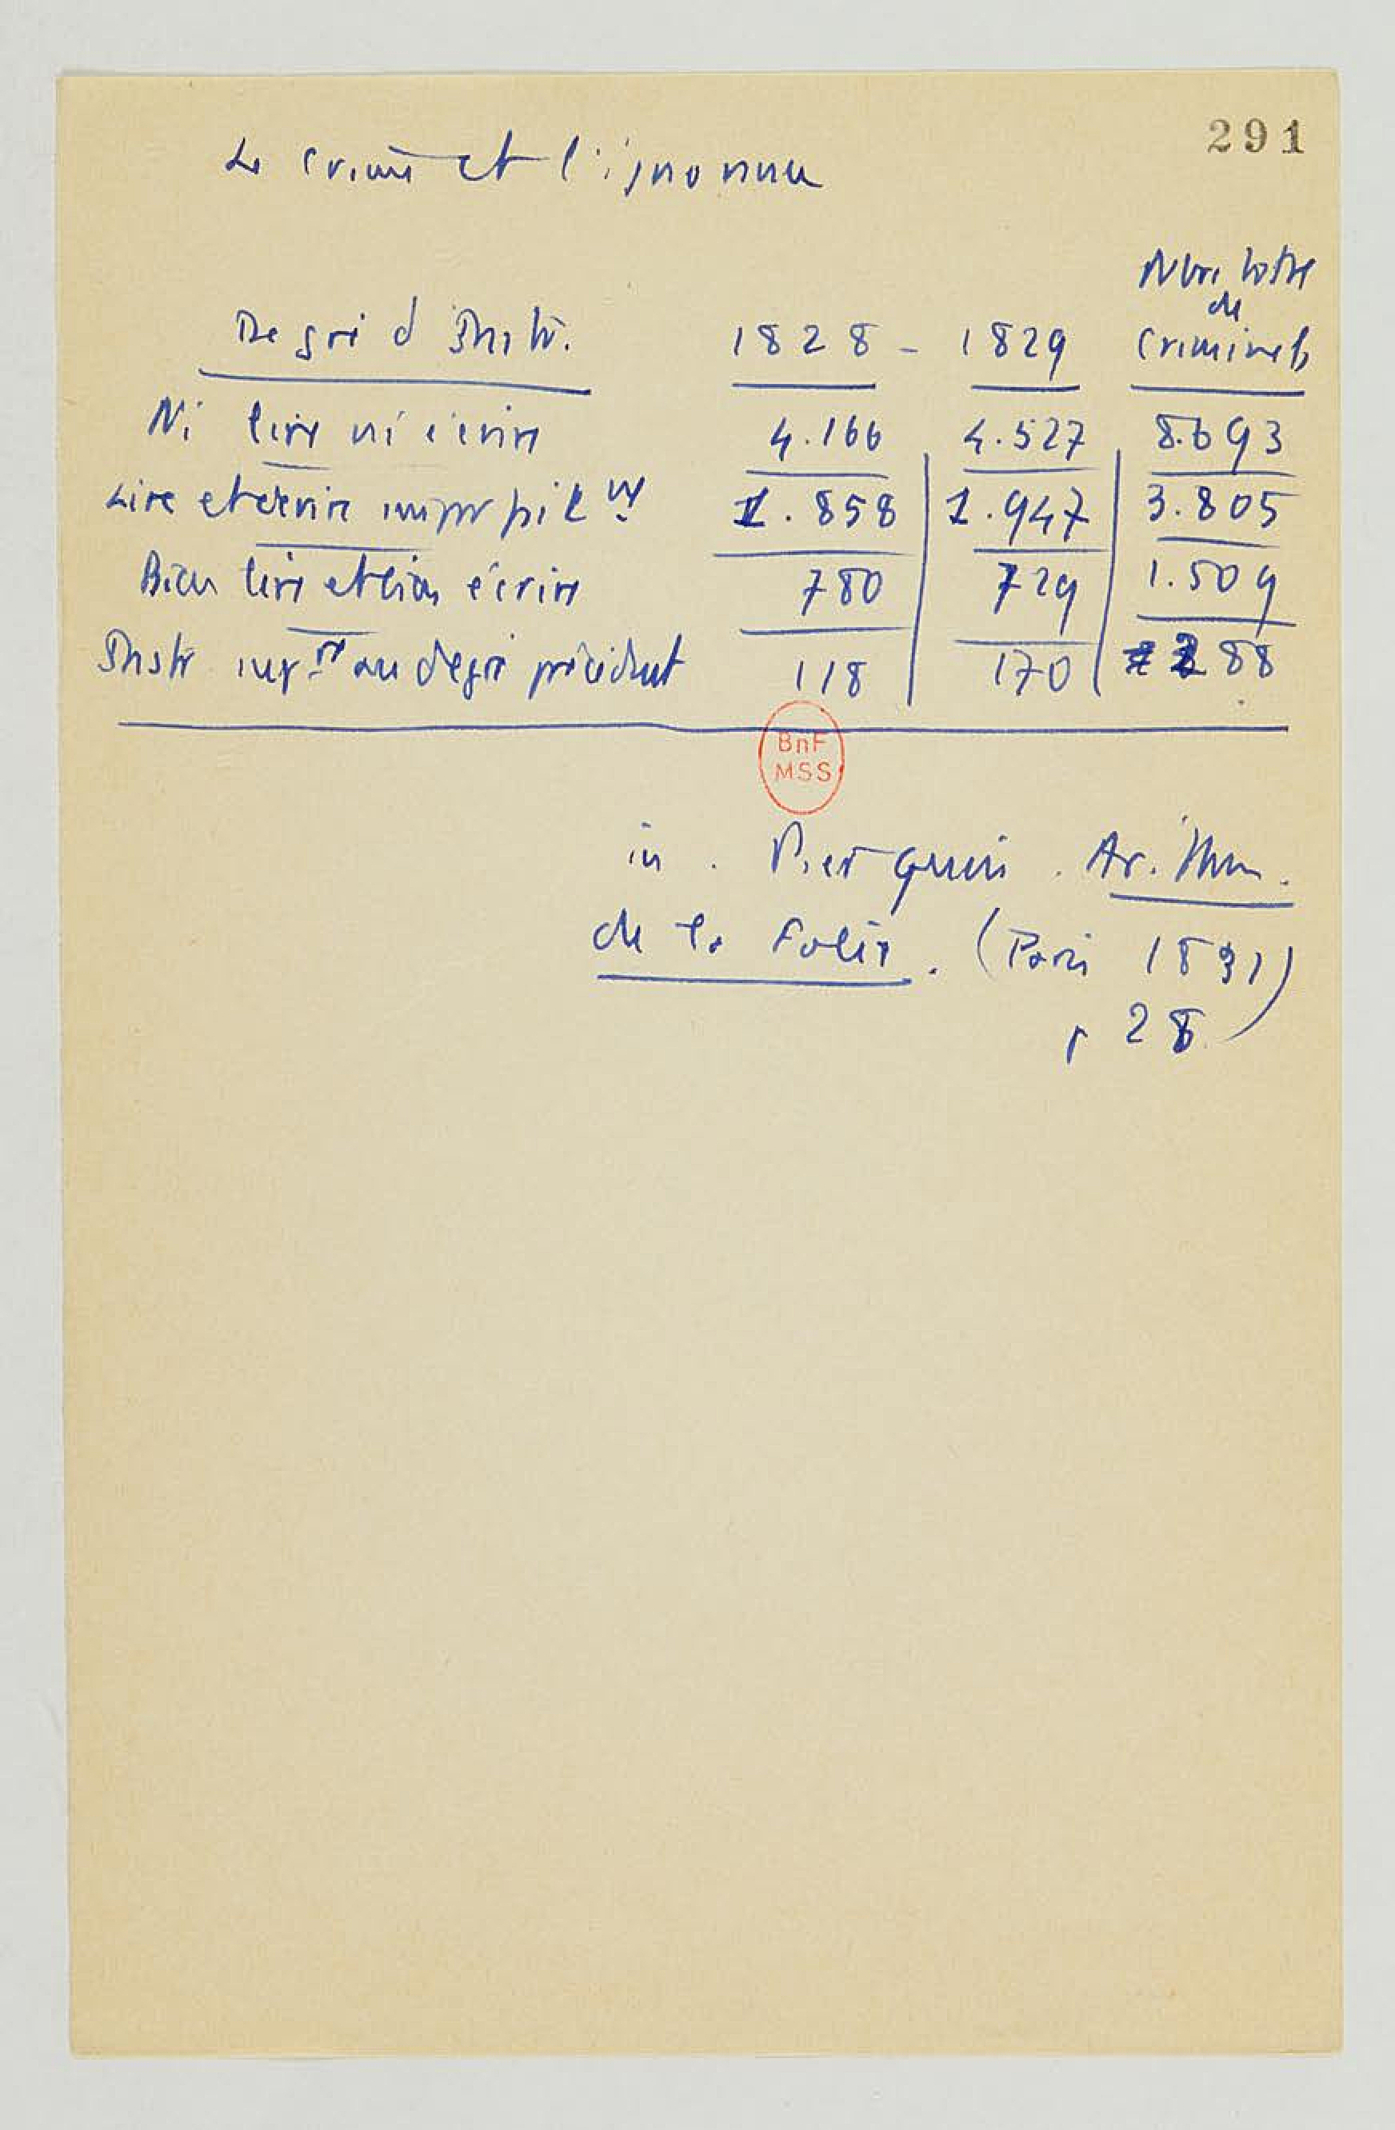 291
Le crime et l'ignorance
Nbre total
de
Degré d'Instr. 1828 - 1829 criminels
Ni lire ni écrire 4.166 4.527 8.693
Lire et écrire imparfait nt 1.858 1.947 3.805
Bien lire et bien écrire 780 729 1.509
Instr. sup re au degré précédent 118 170 288
BnF
MSS
in. Pierquin. Arithm.
de la Folie. (Paris 1831)
p 28.